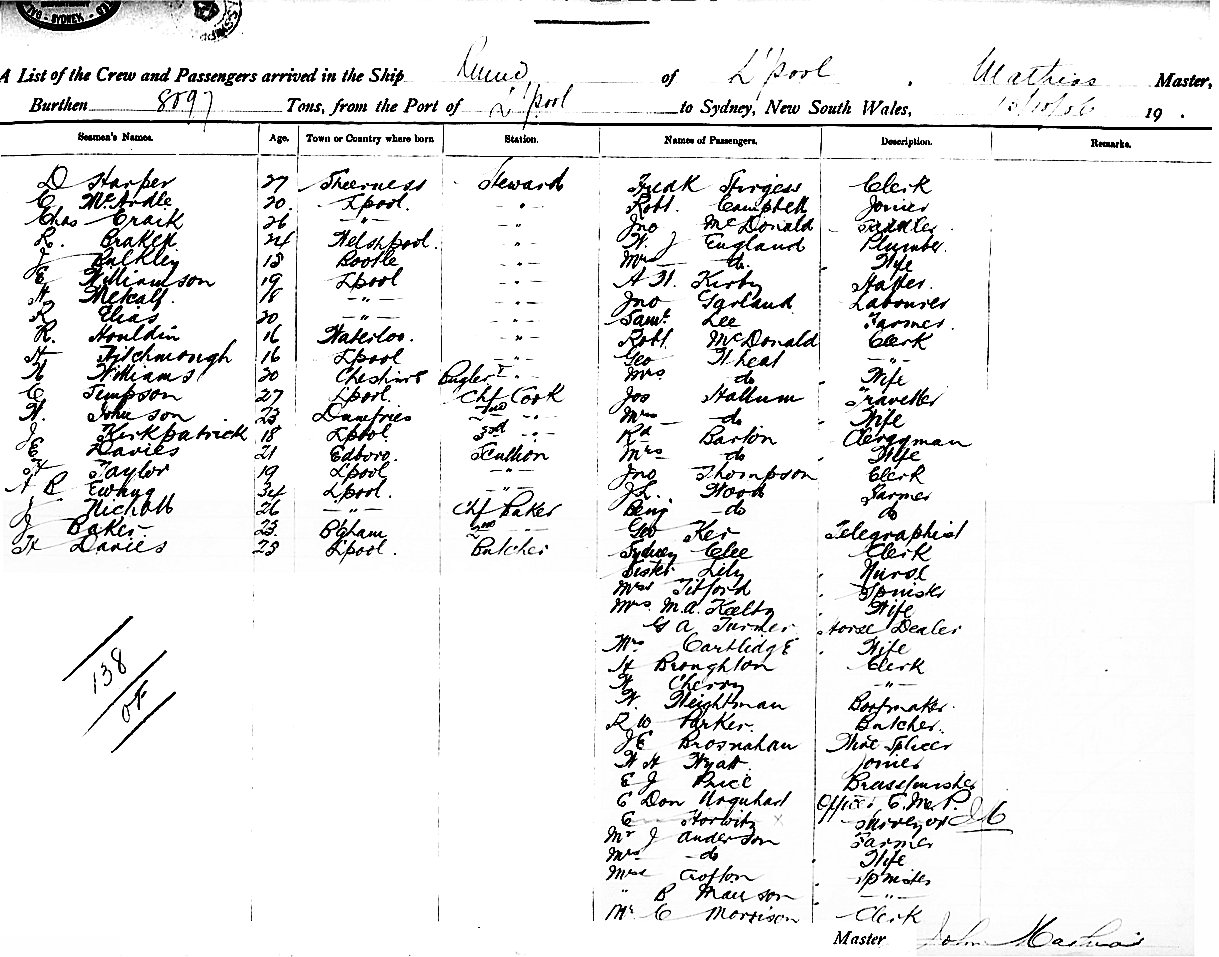 SYDNEY
A List of the Crew and Passengers arrived in the Ship Runic of L'pool , Mathias Master,
Burthen 8097 Tons, from the Port of L'pool to Sydney, New South Wales, 10/10/06 19 .
Seamen's Names. Age. Town or Country where born Station. Names of Passengers. Description. Remarks.
D Harper 27 Sheerness Steward Fredk Sturgess Clerk
C McArdle 20 Lpool. " Robt. Campbell Joiner
Chas Craik 26 " " Jno McDonald Saddler
R. Braken 24 Welshpool. " W. J England Plumber
J Bulkley 18 Bootle " Mrs do Wife
E Williamson 19 Lpool " A H. Kirby
H Metcalf. 18 " " Jno Garland Labourer
R Elias 20 " " Saml Lee Farmer
R. Houldin 16 Waterloo. " Robt. McDonald Clerk
H Hitchmough 16 Lpool " Geo Wheat "
W Williams 20 Cheshire Bugler Mrs do Wife
C Simpson 27 Lpool. Chf Cook Jos Hallum Traveller
W. Johnson 23 Dumfries 2nd " Mrs do Wife
J Kirkpatrick 18 Lpool 3rd " Rd Barton Clergyman
E Davies 21 Edboro. Scullion Mrs do Wife
H Taylor 19 L'pool " Jno Thompson Clerk
A R 34 L'pool. " J L. Wood Farmer
J Nicholl 26 " Chf Baker Benj do do
J Baker 23 B'gham 2nd " Geo Ker Telegraphist
H Davies 23 L'pool. Butcher Sydney Clee Clerk
Sister Lily Nurse
Miss Titford Spinster
Mrs. M.A. Wife
G A Turner Horse Dealer
Mrs Cartlidge Wife
H Broughton Clerk
W Cherry "
W. Weightman Bootmaker.
R W Parker. Butcher.
J E Brosnahan Splicer
W H Wyatt Joiner
E J Price Brassfinisher
E Don Urquhart Officer
E Horwitz Surveyor
Mr J Anderson Farmer
Mrs do Wife
Miss Crofton Spinster
" B "
Mr C Morrison Clerk
138
Master John Mathias